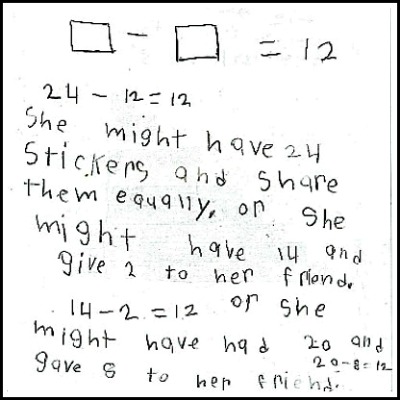 □ - □ = 12
24 - 12 = 12
She might have 24
Stickers and share
them equally. or She
might have 14 and
give 2 to her friend.
14 - 2 = 12 or She
might have had 20 and
20 - 8 = 12
gave 8 to her friend.